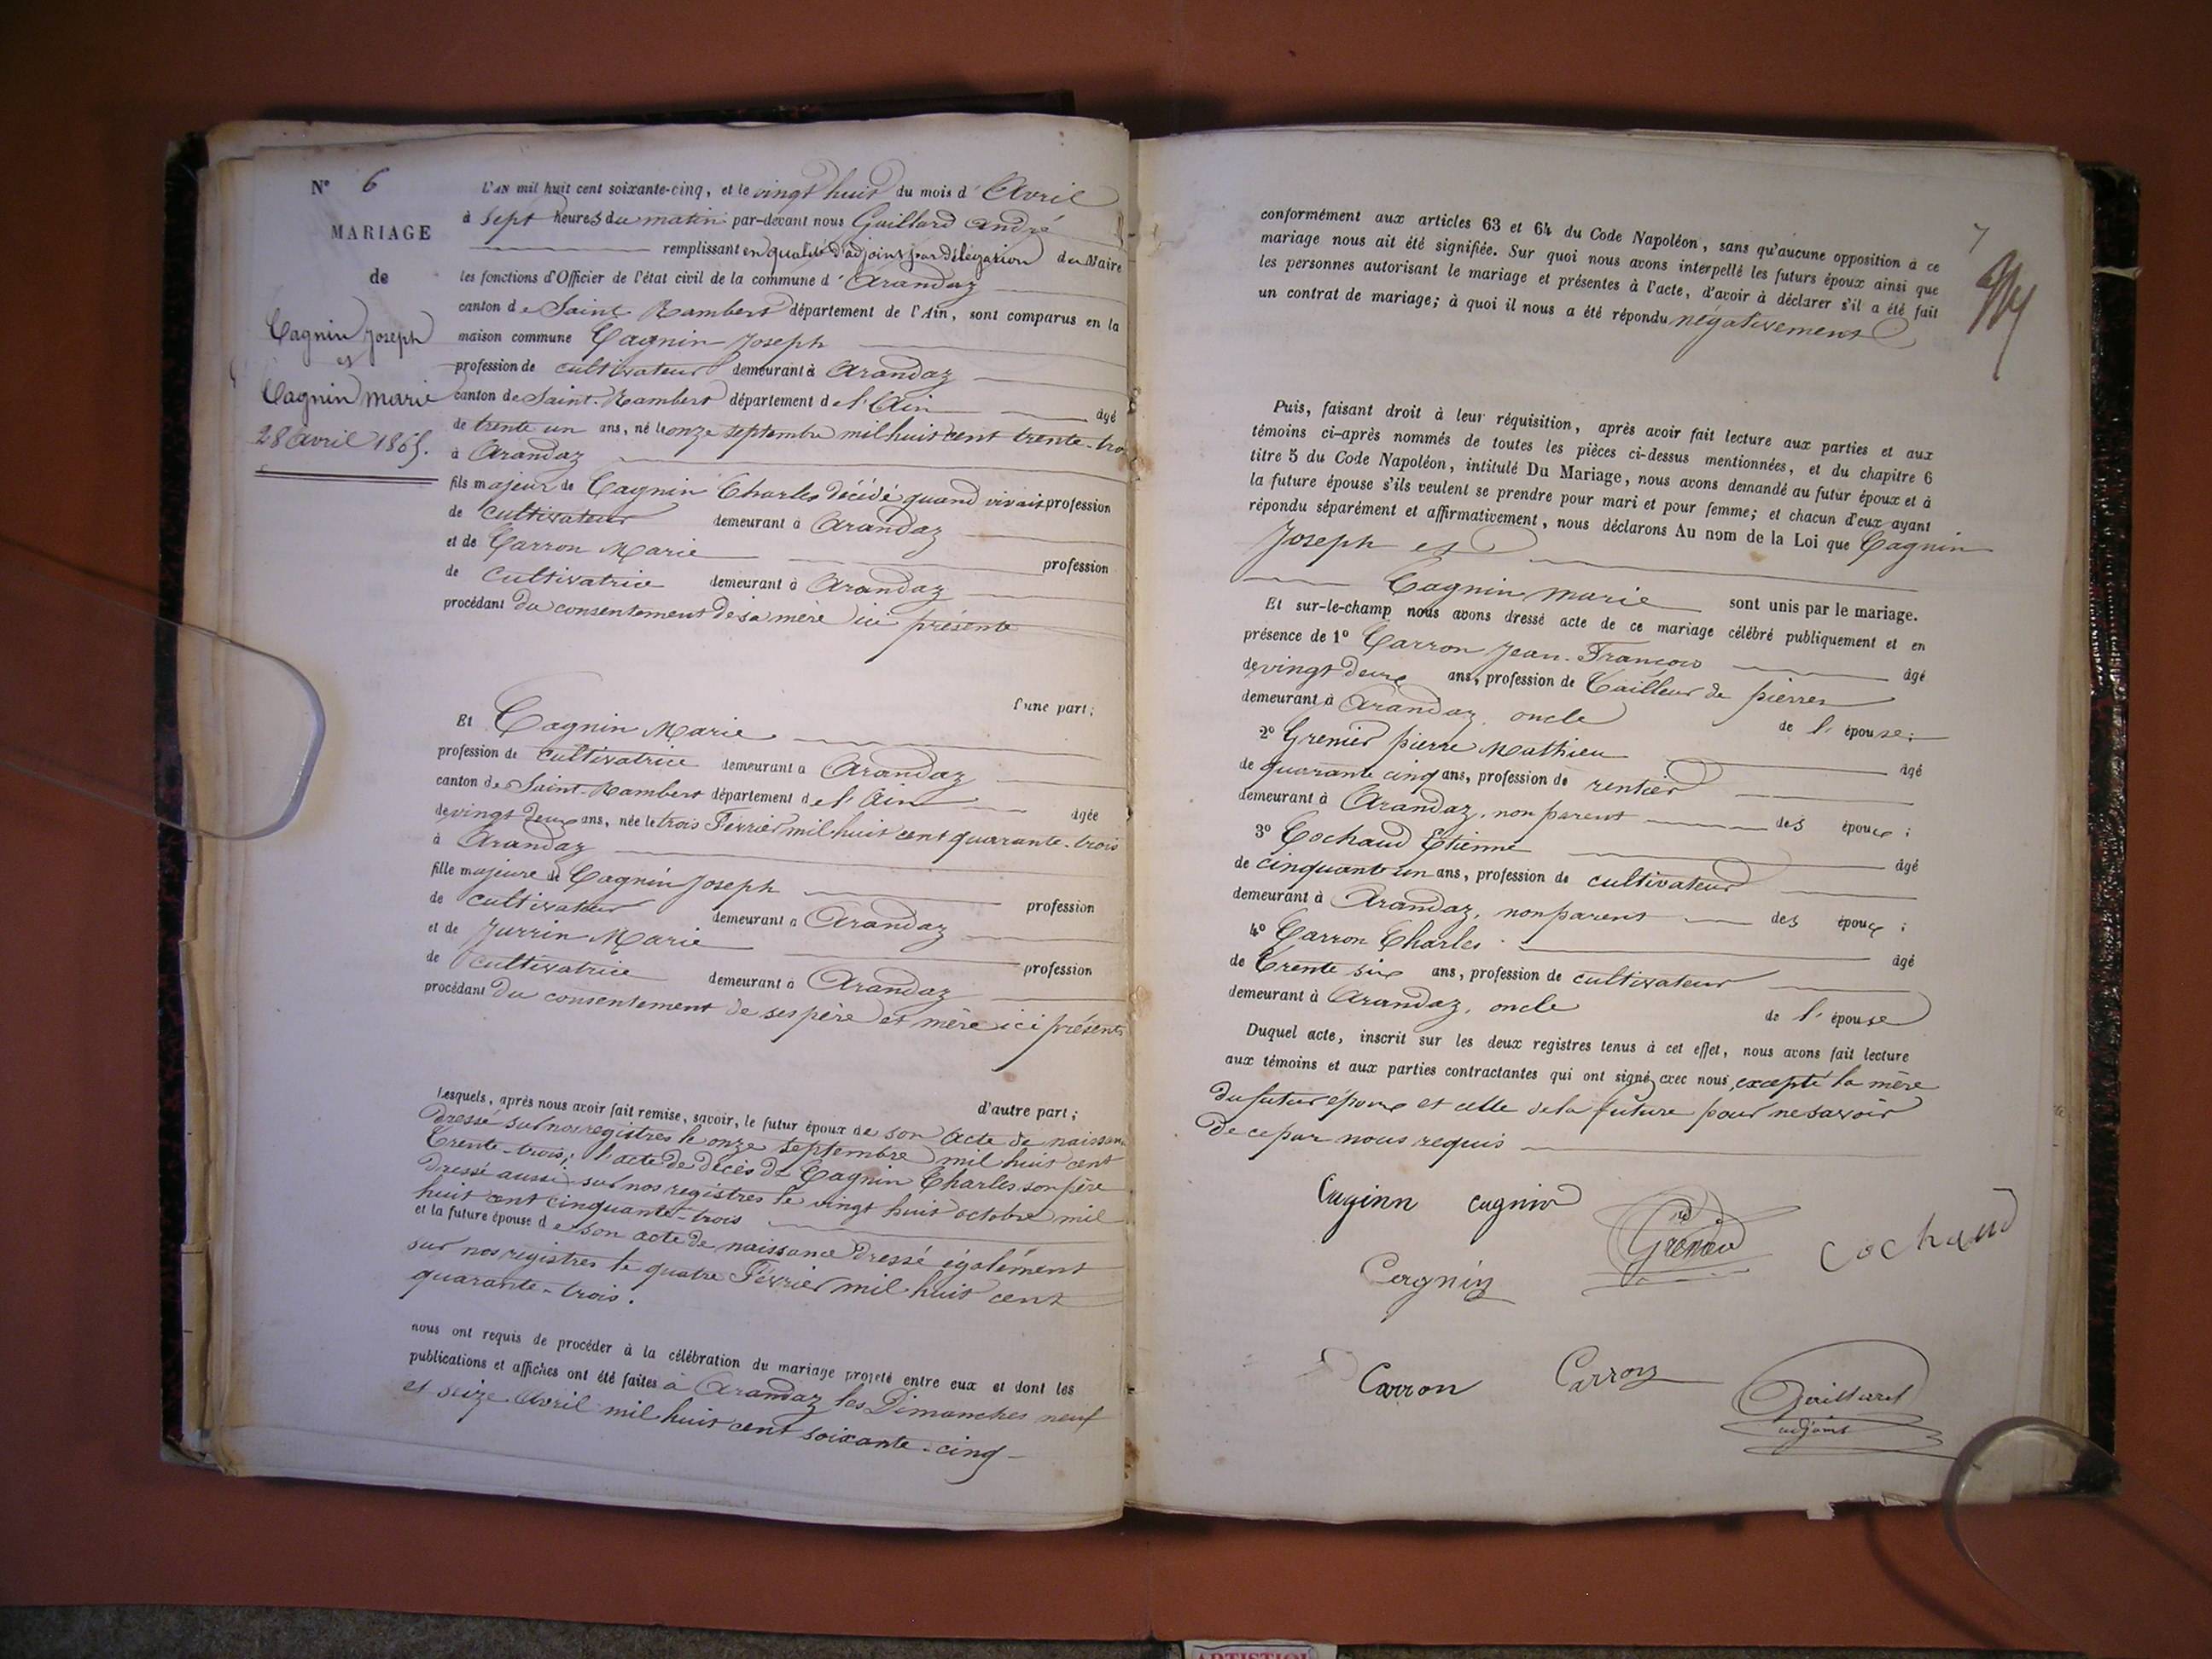 N° 6
MARIAGE
de
Cagnin Joseph
et
Cagnin Marie
28 avril 1865.
L'AN mil huit cent soixante-cinq, et le vingt huit du mois d'Avril
à Sept heures du matin par-devant nous Gaillard André
remplissant en qualité d'adjoint par délégation du Maire
les fonctions d'Officier de l'état civil de la commune d'Arandaz
canton de Saint-Rambert département de l'Ain, sont comparus en la
maison commune Cagnin Joseph
profession de cultivateur demeurant à Arandaz
canton de Saint-Rambert département de l'Ain âgé
de trente un ans, né le onze septembre mil huit cent trente-tro
à Arandaz
fils majeur de Cagnin Charles décédé quand vivait profession
de cultivateur demeurant à Arandaz
et de Carron Marie profession
de cultivatrice demeurant à Arandaz
procédant du consentement de sa mère ici présente
d'une part;
Et Cagnin Marie
profession de cultivatrice demeurant à Arandaz
canton de Saint-Rambert département de l'Ain âgée
de vingt deux ans, née le trois Février mil huit cent quarante-trois
à Arandaz
fille majeure de Cagnin Joseph profession
de cultivateur demeurant à Arandaz
et de Jurrin Marie profession
de cultivatrice demeurant à Arandaz
procédant du consentement de ses père et mère ici présents
d'autre part;
Lesquels, après nous avoir fait remise, savoir, le futur époux de son acte de naissance
dressé sur nos registres le onze septembre mil huit cent
trente-trois; l'acte de décès de Cagnin Charles son père
dressé aussi sur nos registres le vingt huit octobre mil
huit cent cinquante-trois
et la future épouse de son acte de naissance dressé également
sur nos registres le quatre Février mil huit cent
quarante-trois.
nous ont requis de procéder à la célébration du mariage projeté entre eux et dont les
publications et affiches ont été faites à Arandaz les Dimanches neuf
et seize Avril mil huit cent soixante-cinq
7
conformément aux articles 63 et 64 du Code Napoléon, sans qu'aucune opposition à ce
mariage nous ait été signifiée. Sur quoi nous avons interpellé les futurs époux ainsi que
les personnes autorisant le mariage et présentes à l'acte, d'avoir à déclarer s'il a été fait
un contrat de mariage; à quoi il nous a été répondu négativement
Puis, faisant droit à leur réquisition, après avoir fait lecture aux parties et aux
témoins ci-après nommés de toutes les pièces ci-dessus mentionnées, et du chapitre 6
titre 5 du Code Napoléon, intitulé Du Mariage, nous avons demandé au futur époux et à
la future épouse s'ils veulent se prendre pour mari et pour femme; et chacun d'eux ayant
répondu séparément et affirmativement, nous déclarons Au nom de la Loi que Cagnin
Joseph et
Cagnin Marie sont unis par le mariage.
Et sur-le-champ nous avons dressé acte de ce mariage célébré publiquement et en
présence de 1° Carron Jean-François âgé
de vingt deux ans, profession de Tailleur de pierres
demeurant à Arandaz, oncle de l'épouse;
2° Grenier pierre Mathieu âgé
de quarante cinq ans, profession de rentier
demeurant à Arandaz, non parent des époux;
3° Cochaud Etienne âgé
de cinquante un ans, profession de cultivateur
demeurant à Arandaz, non parent des époux;
4° Carron Charles âgé
de trente six ans, profession de cultivateur
demeurant à Arandaz, oncle de l'épouse
Duquel acte, inscrit sur les deux registres tenus à cet effet, nous avons fait lecture
aux témoins et aux parties contractantes qui ont signé avec nous, excepté la mère
du futur époux et celle de la future pour ne savoir
de ce par nous requis
Cuginn cagnin
Grenier
Cochaud
Cagnin
Carron Carron
Gaillard
adjoint
ARTISTIQU